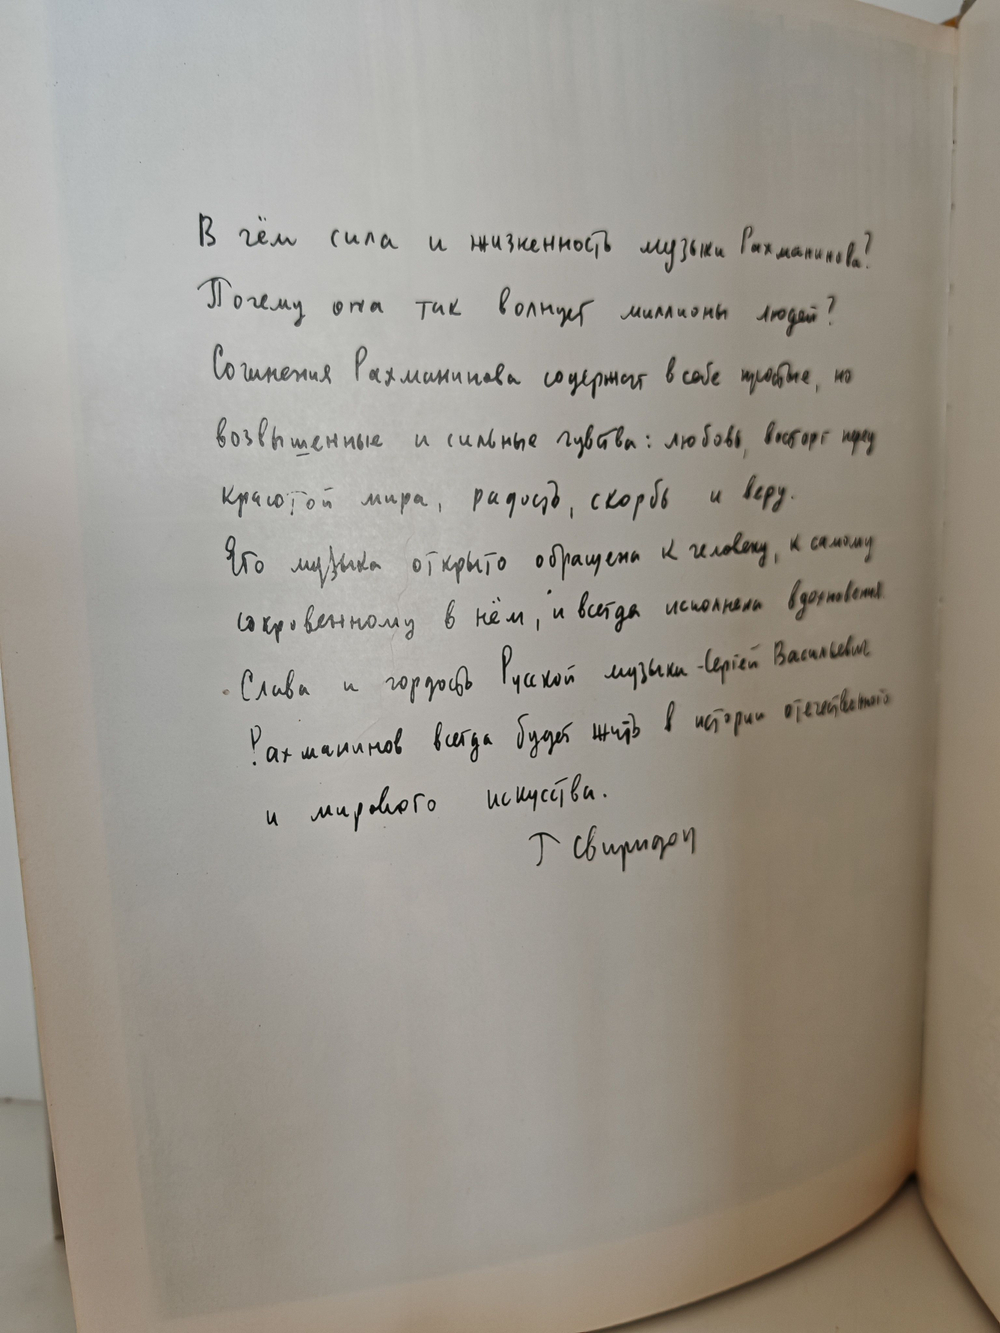 В чём сила и жизненность музыки Рахманинова?
Почему она так волнует миллионы людей?
Сочинения Рахманинова содержат в себе простые, но
возвышенные и сильные чувства: любовь, восторг перед
красотой мира, радость, скорбь и веру.
Его музыка открыто обращена к человеку, к самому
сокровенному в нём, и всегда исполнена вдохновения.
Слава и гордость Русской музыки - Сергей Васильевич
Рахманинов всегда будет жить в истории отечественного
и мирового искусства.
Г Свиридов